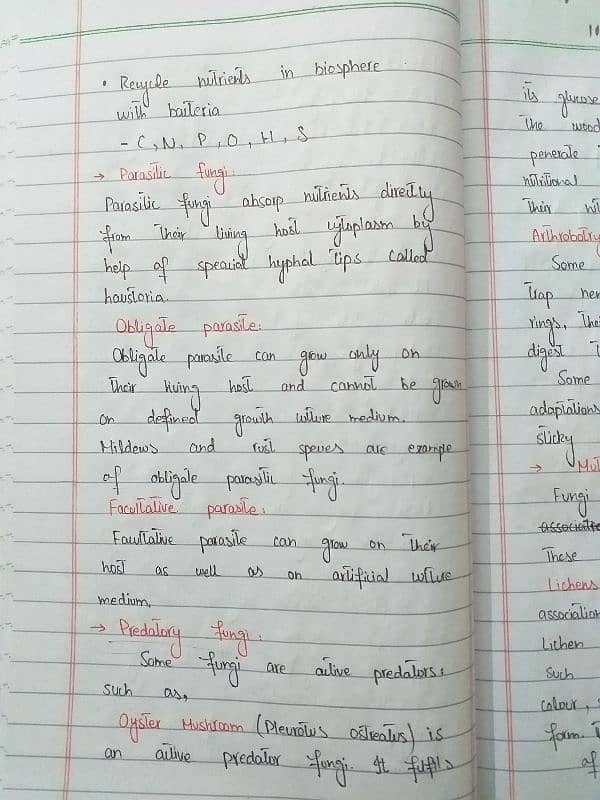 • Recycle nutrients in biosphere
with bacteria
- C, N, P, O, H, S
→ Parasitic fungi.
Parasitic fungi absorp nutrients directly
from their living host cytoplasm by
help of special hyphal tips called
haustoria.
Obligate parasite:
Obligate parasite can grow only on
their living host and cannot be grown
on defined growth culture medium.
Mildews and rust species are example
of obligate parasitic fungi.
Facultative parasite:
Facultative parasite can grow on their
host as well as on artificial culture
medium.
→ Predatory fungi:
Some fungi are active predators:
such as,
Oyster Mushroom (Pleurotus ostreatus) is
an active predator fungi. It fulfils
10
its glucose
the wood
penerate
nutritional
their
Arthrobotry
Some
trap
rings. The
digest
Some
adaptations
sticky
→ Mu
Fungi
Associate
These
Lichens
association
Lichen
such
colour,
form.
of